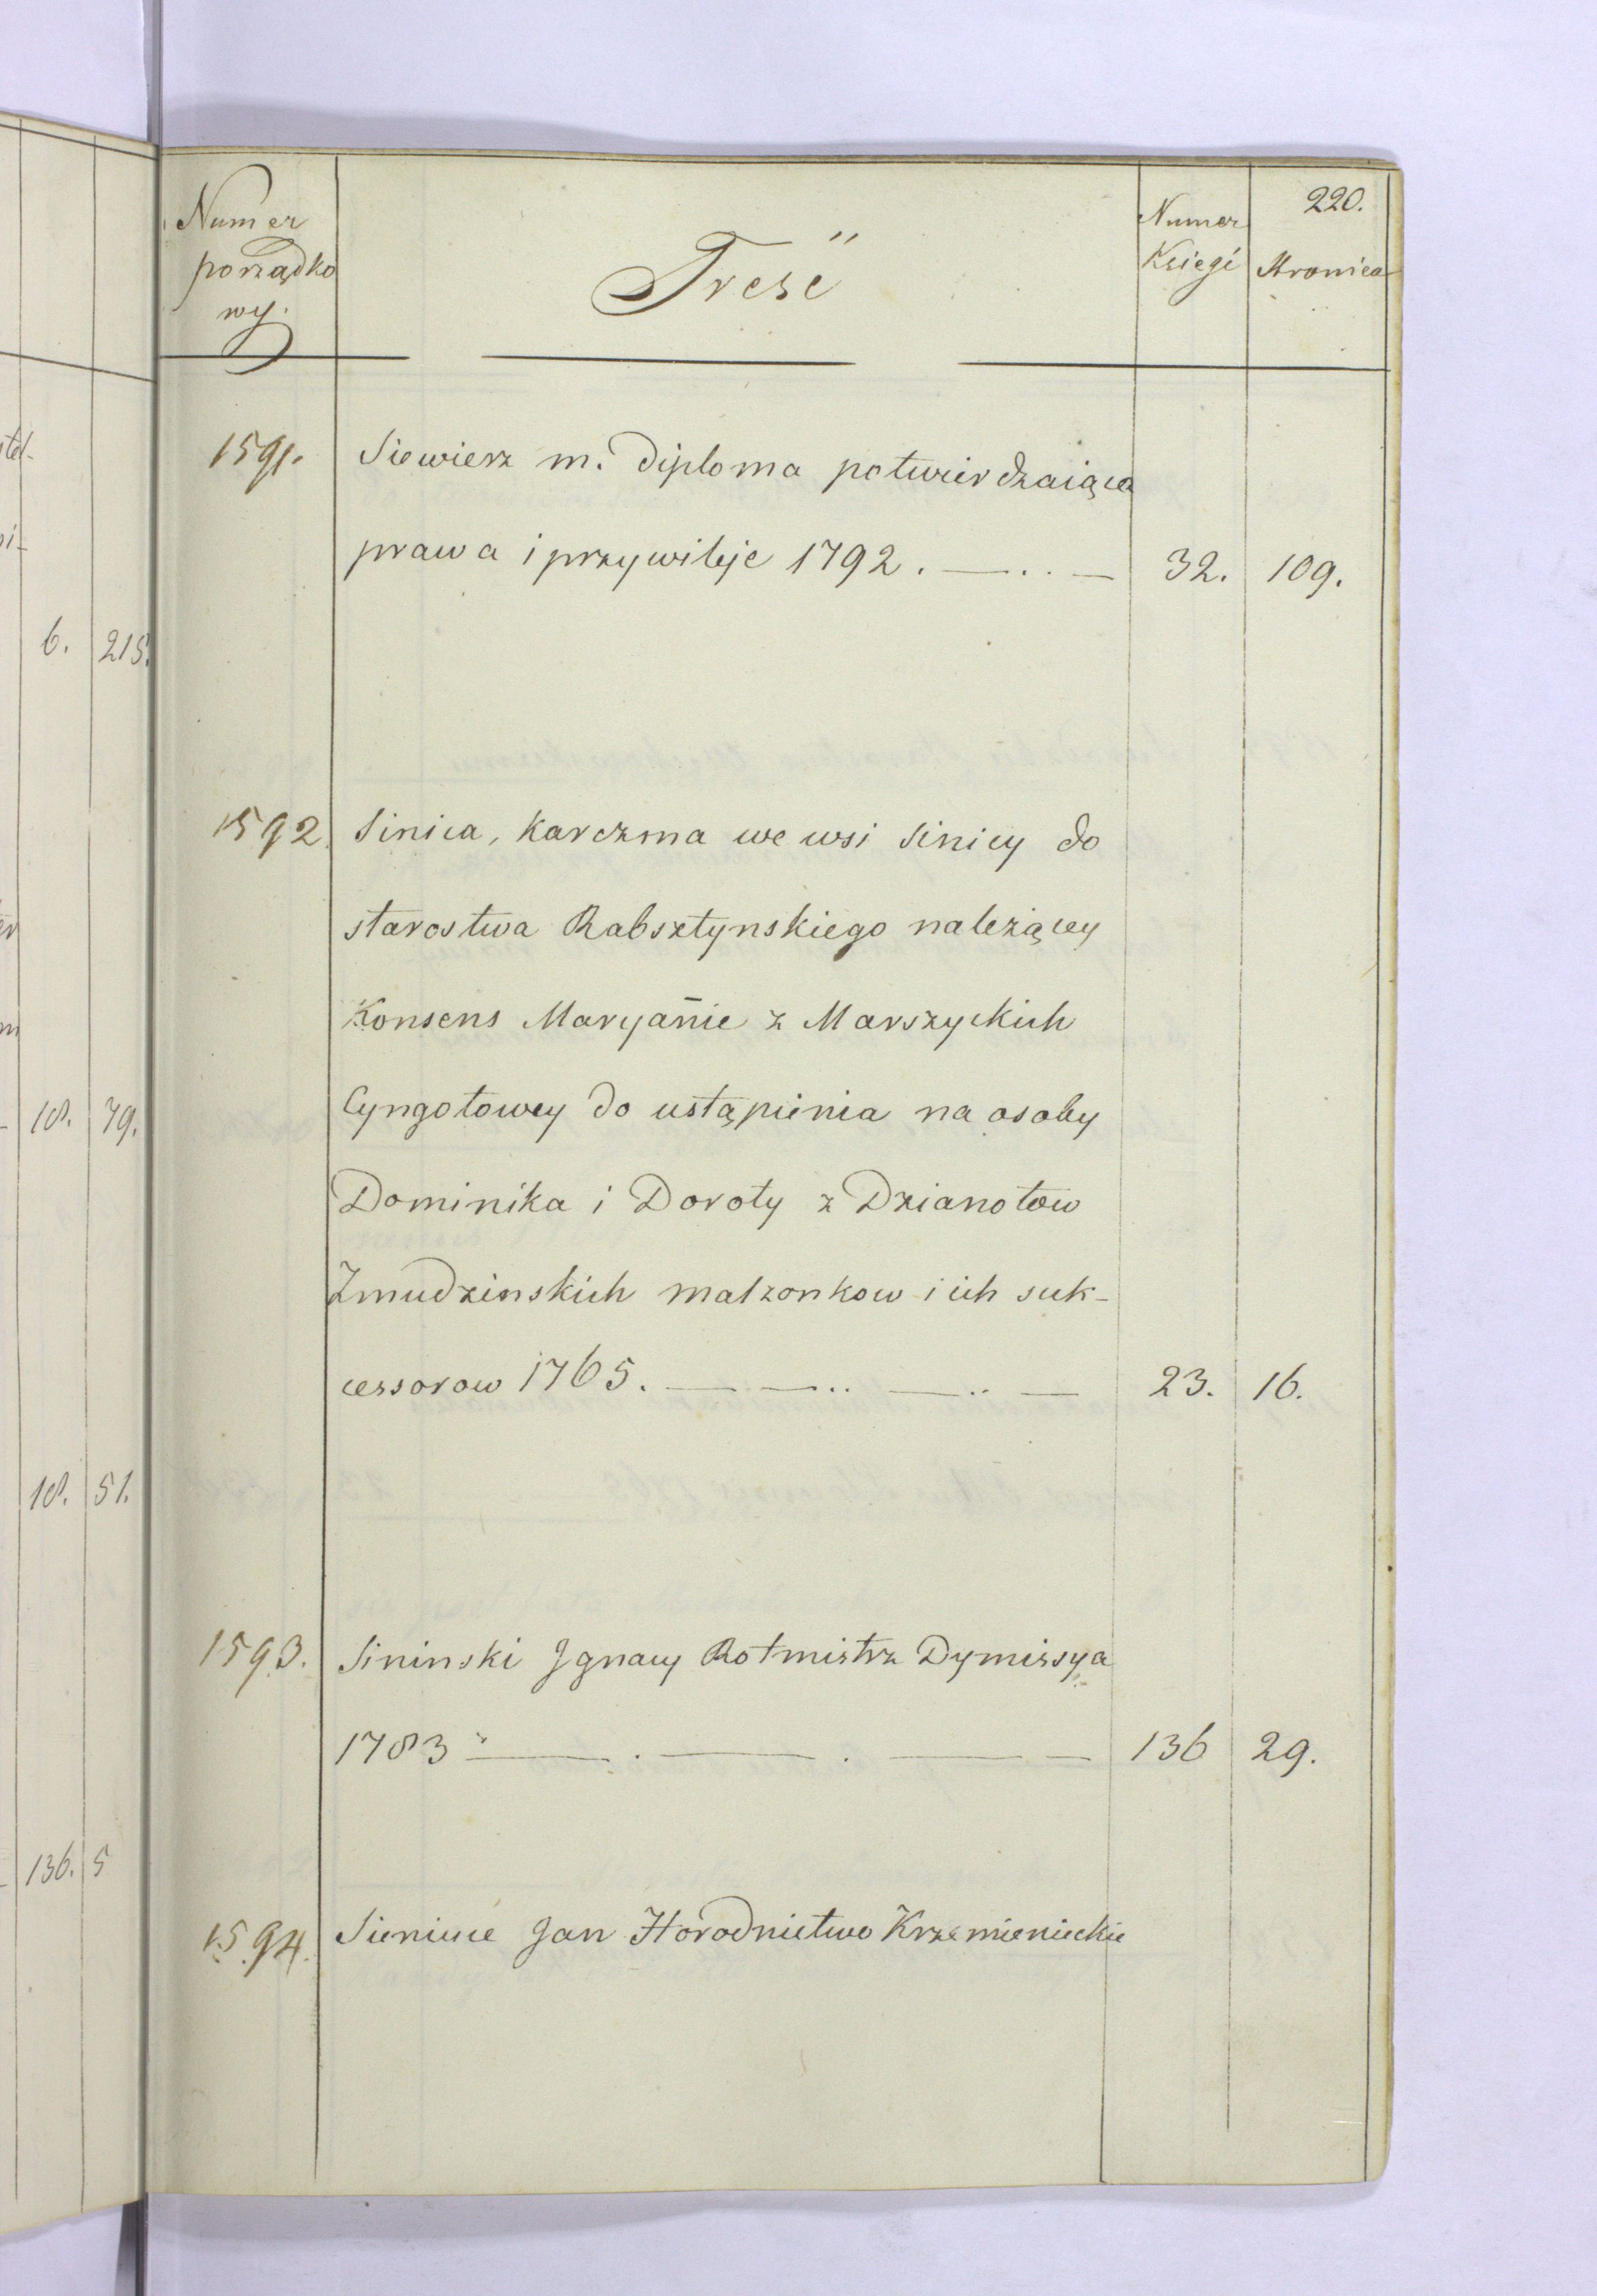 220.
Numer porządko wy.
Treść
Numer Księgi
Stronica
1591. Siewierz m. Diploma potwierdzaiąca
prawa i przywileje 1792. 32. 109.
1592. Sinica, karczma we wsi Sinicy do
starostwa Rabsztynskiego należącey
Konsens Maryañie z Marszyckich
Cyngotowey do ustąpienia na osoby
Dominika i Doroty z Dzianotow
Zmudzinskich małzonkow i ich suk-
cessorow 1765. 23. 16.
1593. Sininski Jgnacy Rotmistrz Dymissya
1783 136 29.
1594. Jan Horodnictwo Krzemienieckie
6. 215.
18. 79.
18. 51.
136. 5